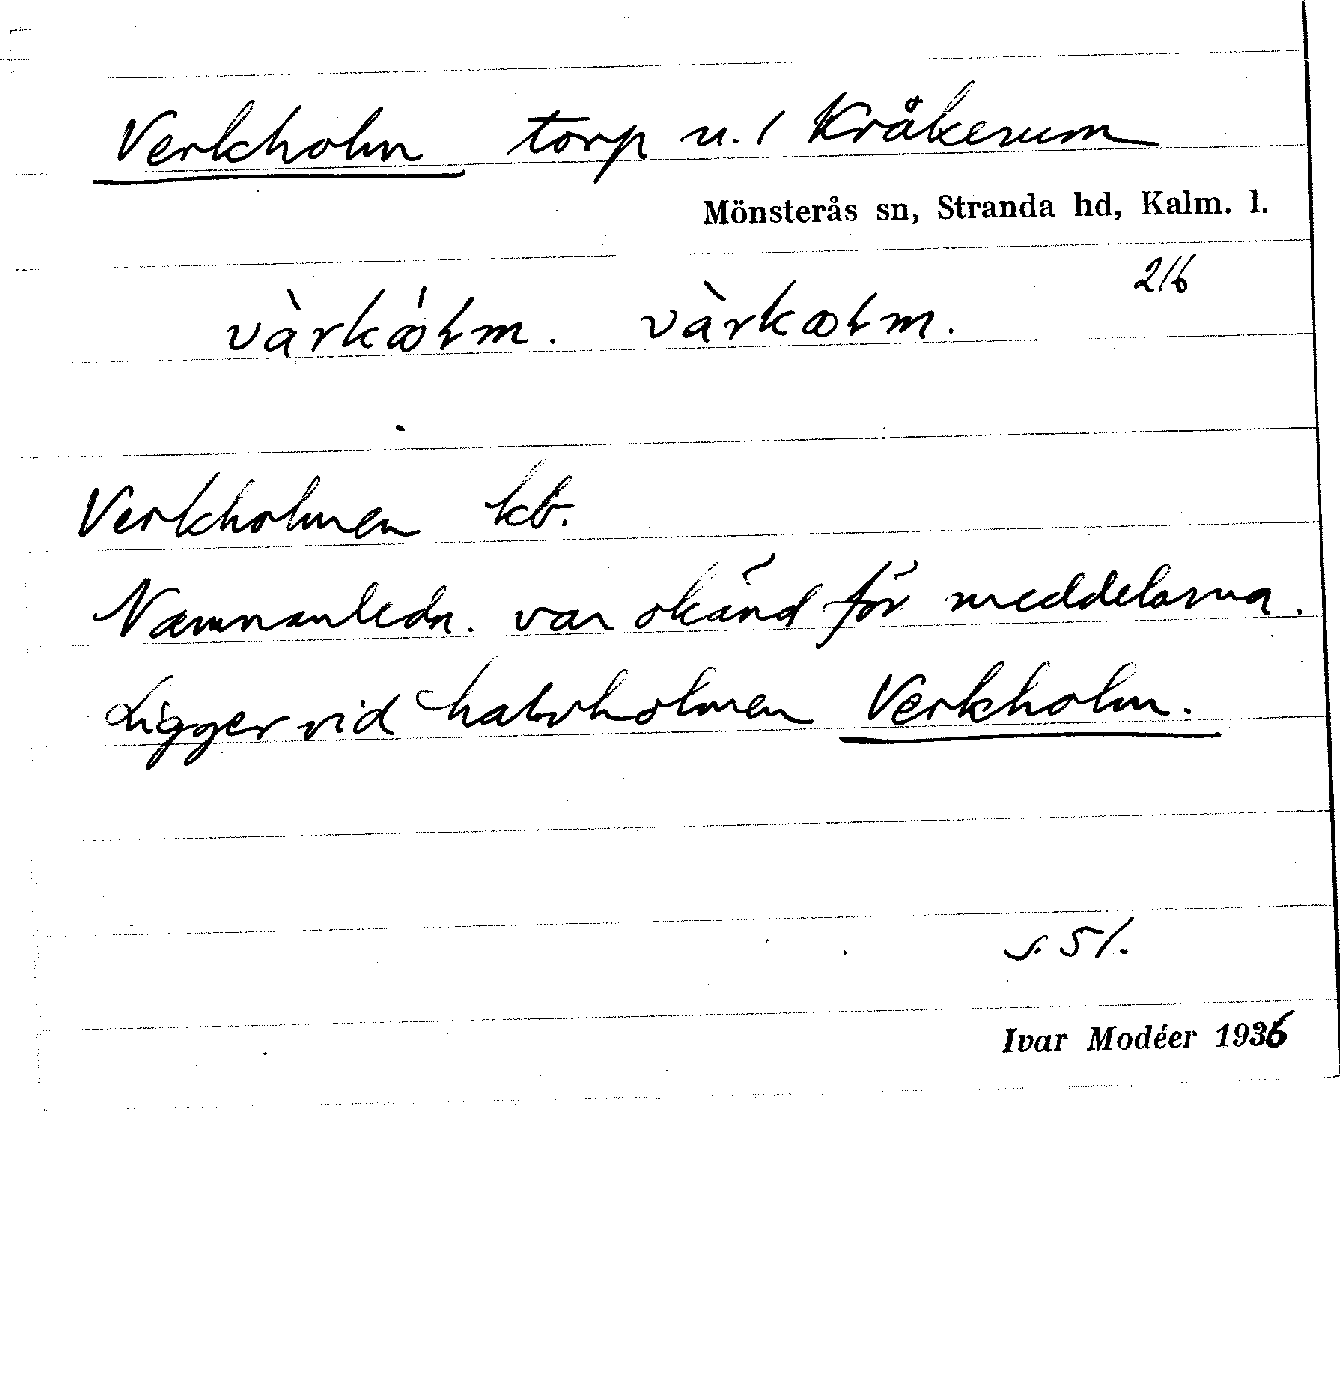 Verkholm torp u. / Kråkerum
Mönsterås sn, Stranda hd, Kalm. l.
216
vàrkól̵m. vàrkol̵m.
Verkholmen kb.
Namnanledn. var okänd för meddelarna.
Ligger vid halvholmen Verkholm.
s. 51.
Ivar Modéer 1936